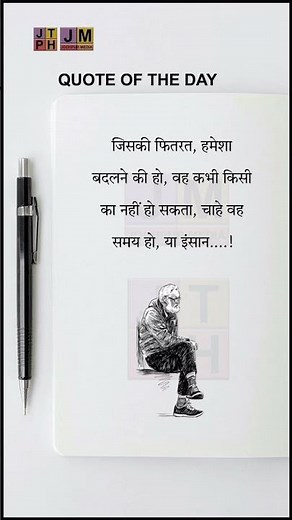 JT JM
PH
QUOTE OF THE DAY
जिसकी फितरत, हमेशा
बदलने की हो, वह कभी किसी
का नहीं हो सकता, चाहे वह
समय हो, या इंसान....!
JT
PH